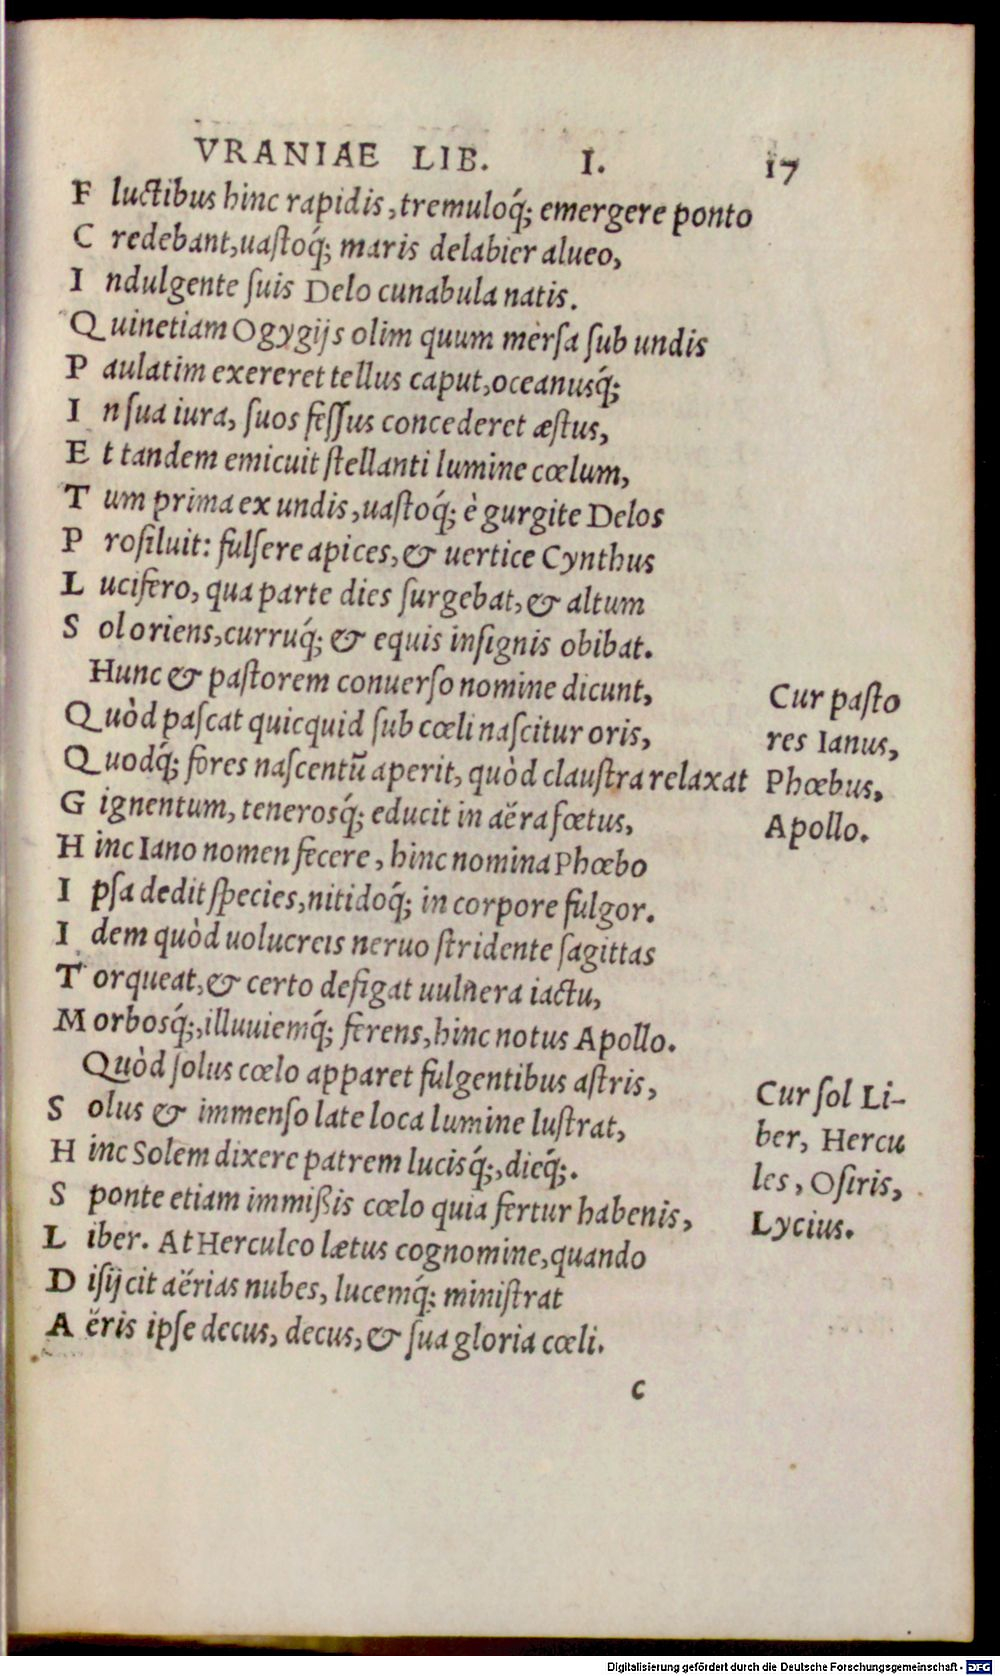 VRANIAE LIB. I. 17
Fluctibus hinc rapidis, tremuloq́; emergere ponto
Credebant, uastoq́; maris delabier alueo,
Indulgente suis Delo cunabula natis.
Quinetiam Ogygijs olim quum mersa sub undis
Paulatim exereret tellus caput, oceanusq́;
In sua iura, suos fessus concederet æstus,
Et tandem emicuit stellanti lumine cœlum,
Tum prima ex undis, uastoq́; è gurgite Delos
Prosiluit: fulsere apices, & uertice Cynthus
Lucifero, qua parte dies surgebat, & altum
Sol oriens, curruq́; & equis insignis obibat.
Hunc & pastorem conuerso nomine dicunt,
Quòd pascat quicquid sub cœli nascitur oris,
Quodq́; fores nascentũ aperit, quòd claustra relaxat
Gignentum, tenerosq́; educit in aëra fœtus,
Hinc Iano nomen fecere, hinc nomina Phœbo
Ipsa dedit species, nitidoq́; in corpore fulgor.
Idem quòd uolucreis neruo stridente sagittas
Torqueat, & certo defigat uulnera iactu,
Morbosq́;, illuuiemq́; ferens, hinc notus Apollo.
Quòd solus cœlo apparet fulgentibus astris,
Solus & immenso late loca lumine lustrat,
Hinc Solem dixere patrem lucisq́;, dieq́;.
Sponte etiam immißis cœlo quia fertur habenis,
Liber. At Herculeo lætus cognomine, quando
Disijcit aërias nubes, lucemq́; ministrat
Aëris ipse decus, decus, & sua gloria cœli.
c
Cur pasto
res Ianus,
Phœbus,
Apollo.
Cur sol Li-
ber, Hercu
les, Osiris,
Lycius.
Digitalisierung gefördert durch die Deutsche Forschungsgemeinschaft - DFG